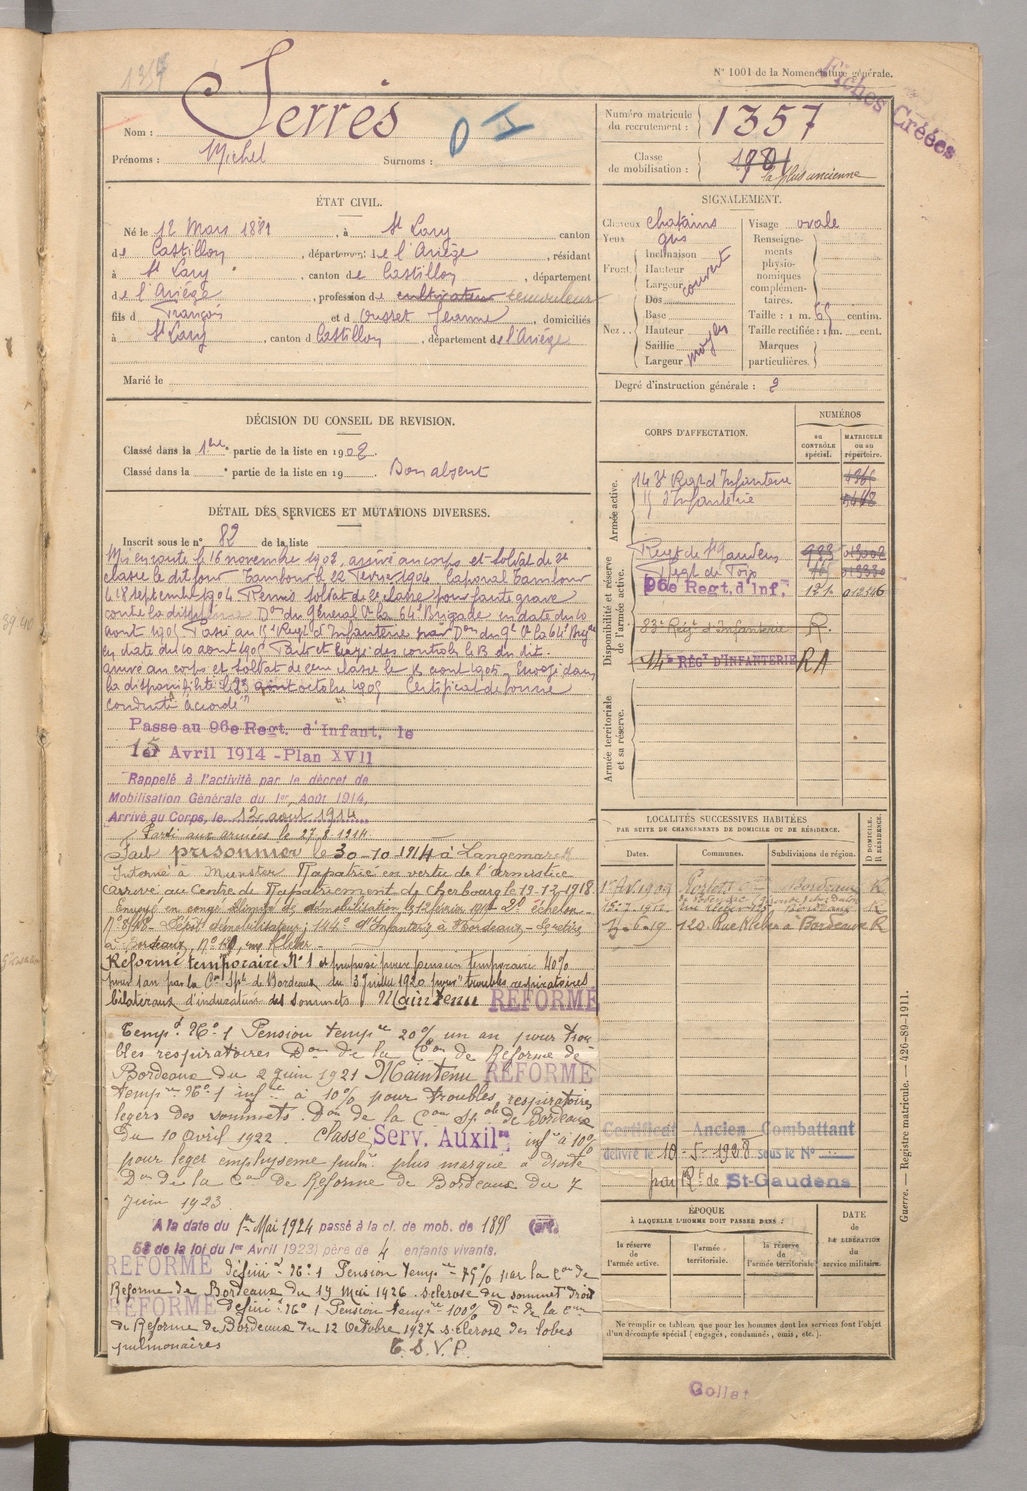 N° 1001 de la Nomenclature générale.
Fiches Créées
1357
Nom : Serrès
Prénoms : Michel Surnoms :
Numéro matricule du recrutement : 1357
Classe de mobilisation : 1901
la plus ancienne
ÉTAT CIVIL.
Né le 12 Mars 1881, à St Lary canton
de Castillon, département de l'Ariège, résidant
à St Lary, canton de Castillon, département
de l'Ariège, profession de cultivateur remouleur
fils d François et d Ousset Jeanne, domiciliés
à St Lary, canton d Castillon, département de l'Ariège
Marié le
SIGNALEMENT.
Cheveux chatains Visage ovale
Yeux gris
Front Inclinaison Hauteur Largeur couvert
Nez Dos Base Hauteur Saillie Largeur moyen
Renseignements physionomiques complémentaires.
Taille : 1 m. 65 centim.
Taille rectifiée : 1 m. cent.
Marques particulières.
Degré d'instruction générale : 2
DÉCISION DU CONSEIL DE REVISION.
Classé dans la 1ère partie de la liste en 1902.
Classé dans la partie de la liste en 19 Bon absent
CORPS D'AFFECTATION.
NUMÉROS
au contrôle spécial.
matricule ou au répertoire.
Armée active.
143e Regt d'Infanterie
15 d'Infanterie
Disponibilité et réserve de l'armée active.
Regt de St Gaudens
Regt de Foix
96e Regt. d'Inf.
83e Régt d'Infanterie R.
14e RÉGT D'INFANTERIE RA
Armée territoriale et sa réserve.
DÉTAIL DES SERVICES ET MUTATIONS DIVERSES.
Inscrit sous le n° 82 de la liste
Mis en route le 16 novembre 1902, arrivé au corps et soldat de 2e
classe le dit jour Tambour le 22 Février 1904. Caporal Tambour
le 18 septembre 1904. Remis soldat de 2e classe pour faute grave
contre la discipline Don du Général Ct la 64e Brigade en date du 10
aout 1905 Passé au 15e Regt d'Infanterie par Don du Gl Ct la 64e Brige
en date du 10 aout 1905 Parti et rayé des controles le 13 du dit.
arrivé au corps et soldat de 2eme classe le 15 aout 1905 Envoyé dans
la disponibilité le 23 octobre 1905 Certificat de bonne
conduite "accordé"
Passe au 96e Regt. d'Infant, le
1er Avril 1914 - Plan XVII
Rappelé à l'activité par le décret de
Mobilisation Générale du 1er Août 1914,
Arrivé au Corps, le 12 aout 1914
Parti aux armées le 27.8.1914
Fait prisonnier le 30-10-1914 à Langemarck
Interné à Munster Rapatrié en vertu de l'armistice
arrivé au Centre de Rapatriement de Cherbourg le 19-12-1918
Envoyé en congé illimité de démobilisation le 12 février 1919 2e échelon
Dépôt démobilisateur : 144e d'Infanterie à Bordeaux - Se retire
à Bordeaux, N° 120, rue Kléber
Réformé temporaire N° 1 et proposé pour pension temporaire 40%
pour 1 an par la Con Sple de Bordeaux du 3 Juillet 1920 pour "troubles respiratoires
bilateraux d'induration des sommets Maintenu REFORMÉ
Tempre N° 1 Pension tempre 20% un an pour trou-
bles respiratoires Don de la Con de Réforme de
Bordeaux du 2 juin 1921 Maintenu REFORMÉ
tempre N° 1 infre à 10% pour troubles respiratoires
legers des sommets. Don de la Con Sple de Bordeaux
du 10 avril 1922. Classé Serv. Auxilre infre à 10%
pour léger emphyseme pulmre plus marqué à droite
Don de la Con de Réforme de Bordeaux du 7
juin 1923
A la date du 1er Mai 1924 passé à la cl. de mob. de 1895 (art.
58 de la loi du 1er Avril 1923) père de 4 enfants vivants.
REFORMÉ définif N° 1 Pension tempre 75% par la Con de
Réforme de Bordeaux du 19 Mai 1926. sclérose du sommet droit
REFORMÉ définif N° 1 Pension tempre 100% Don de la Con
de Réforme de Bordeaux du 12 Octobre 1927 sclérose des lobes
pulmonaires T.S.V.P.
LOCALITÉS SUCCESSIVES HABITÉES
PAR SUITE DE CHANGEMENTS DE DOMICILE OU DE RÉSIDENCE.
D DOMICILE. R RÉSIDENCE.
Dates. Communes. Subdivisions de région.
Bordeaux R
Bordeaux R
-6-19 120 Rue Kléber à Bordeaux R
Certificat Ancien Combattant
délivré le 10-5-1928 sous le N°
par Rt de St-Gaudens
ÉPOQUE
À LAQUELLE L'HOMME DOIT PASSER DANS :
la réserve de l'armée active.
l'armée territoriale.
la réserve de l'armée territoriale
DATE de LA LIBÉRATION du service militaire.
Ne remplir ce tableau que pour les hommes dont les services font l'objet
d'un décompte spécial (engagés, condamnés, omis, etc.).
Guerre. — Registre matricule. — 426-89-1911.
Gollat